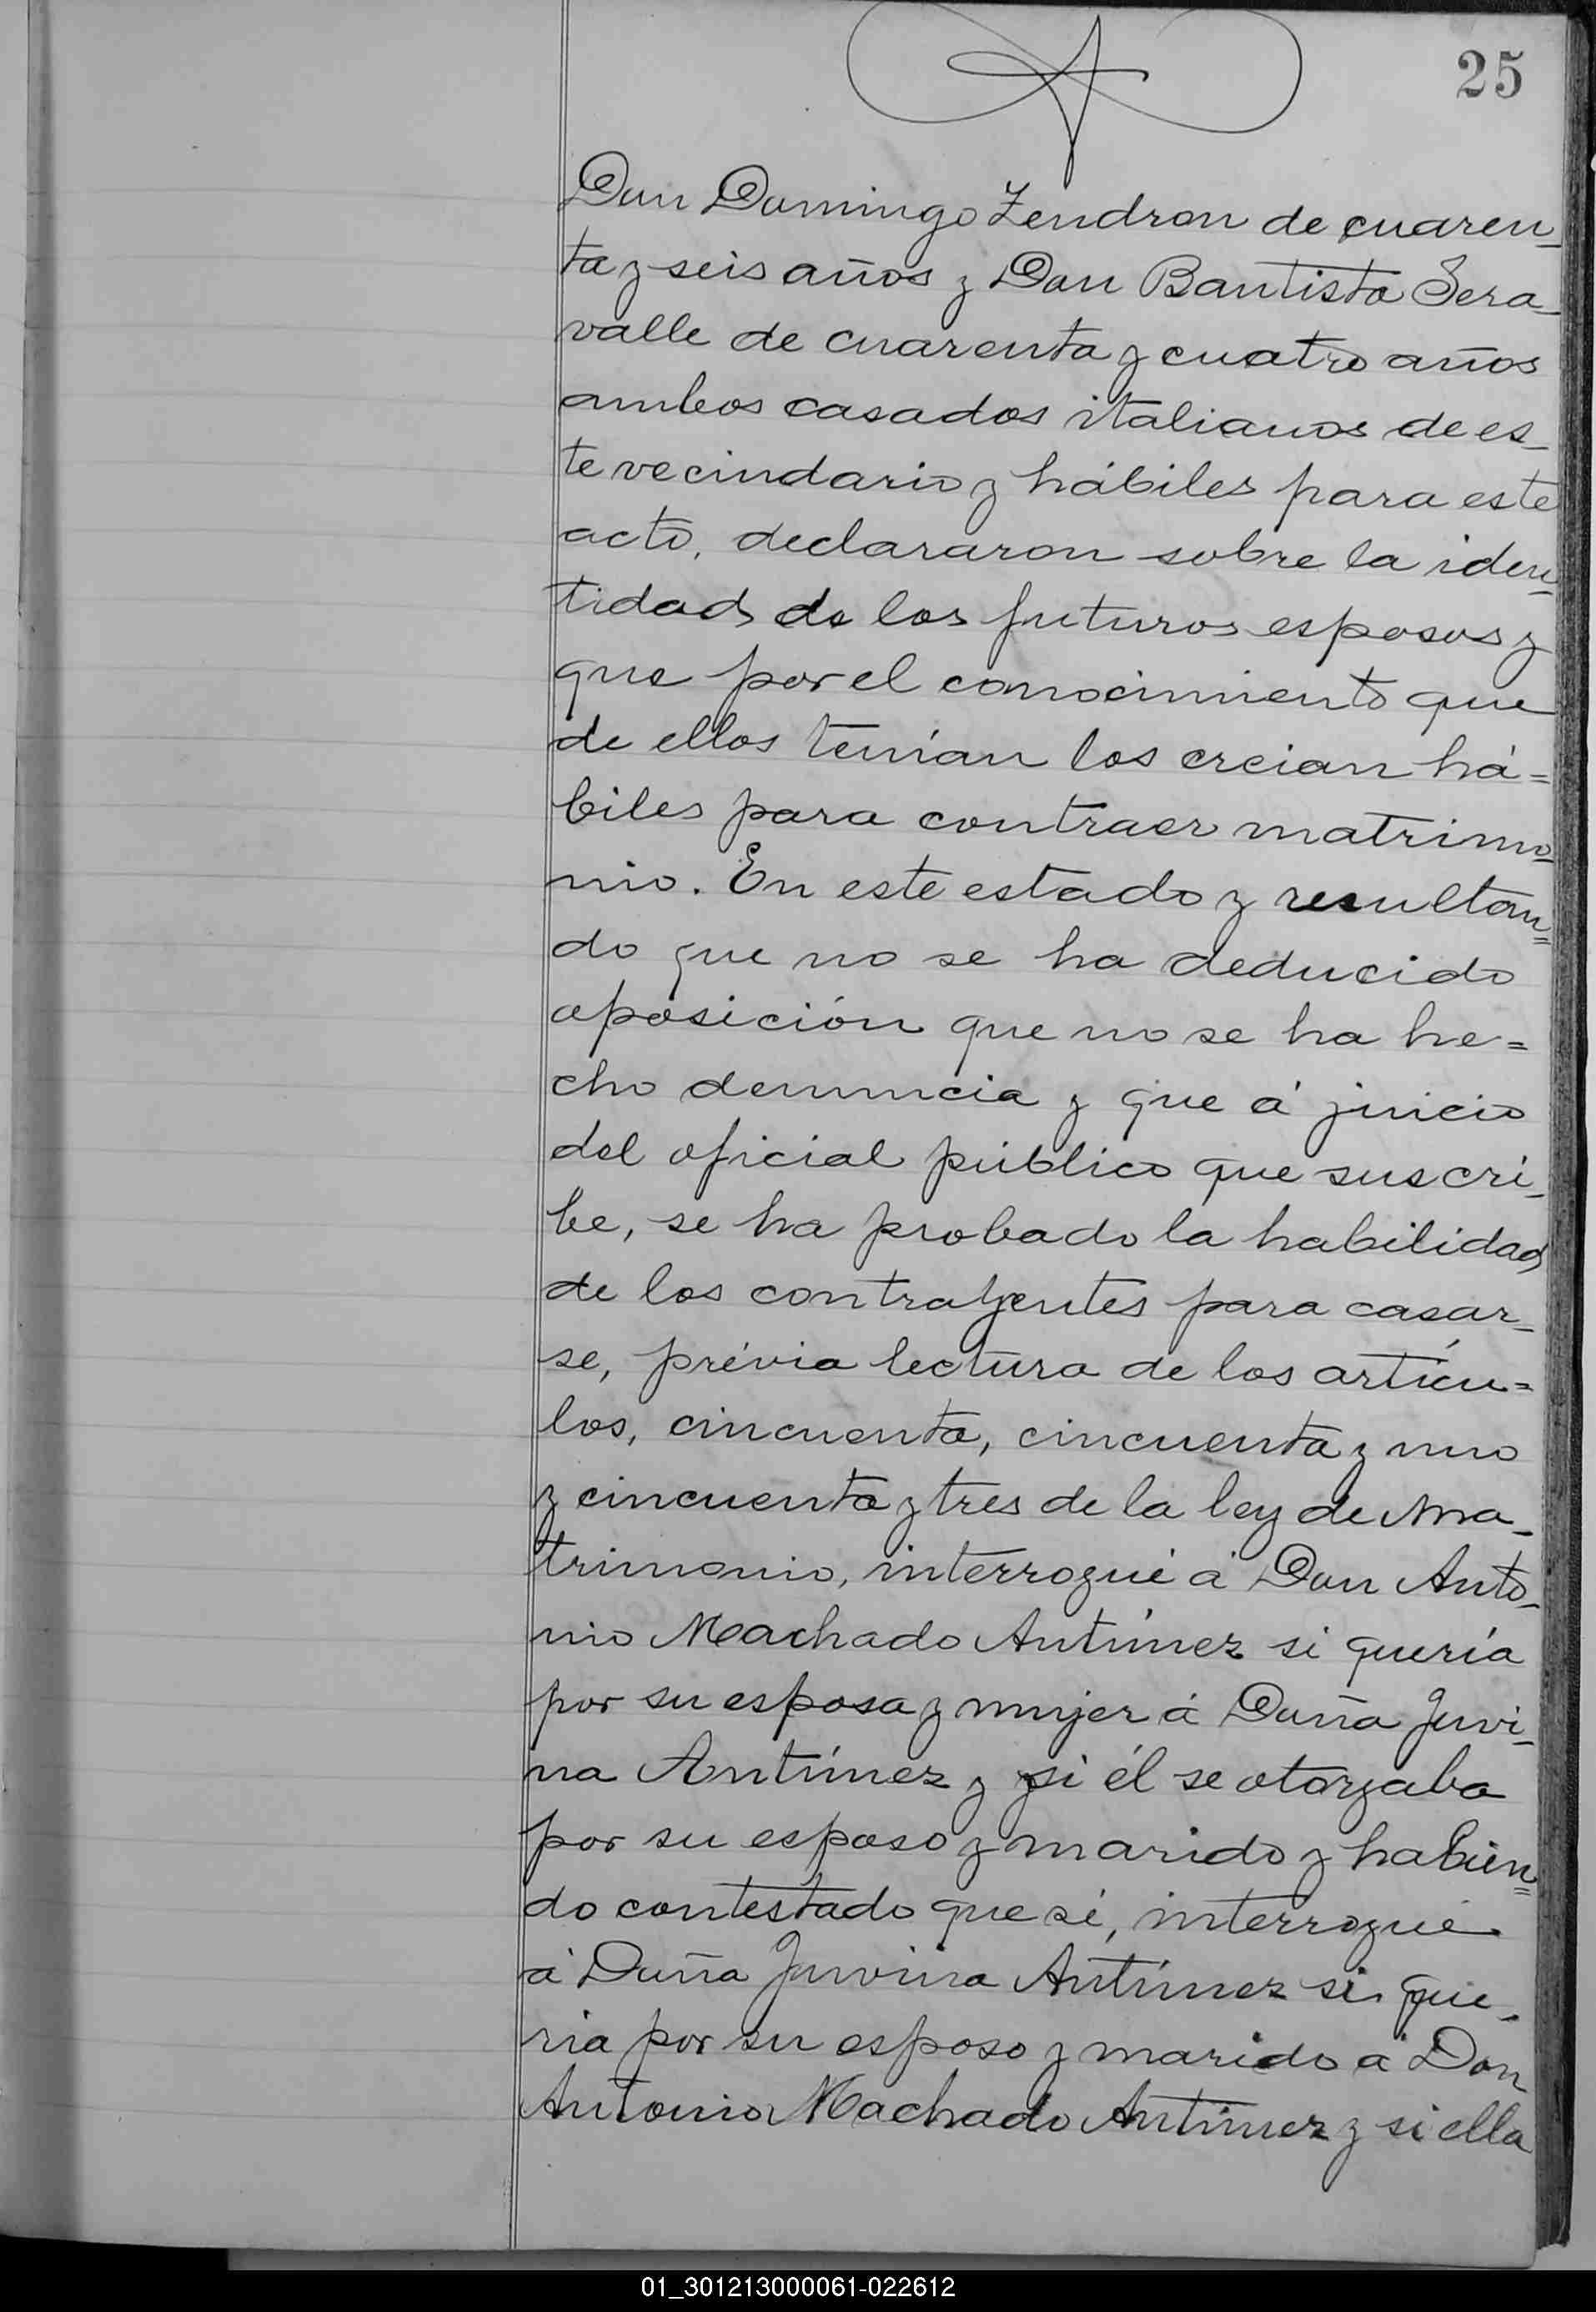 25
Don Domingo Zendron de cuaren_
ta y seis años y Don Bautista Sera_
valle de cuarenta y cuatro años
ambos casados italianos de es_
te vecindario y hábiles para este
acto, declararon sobre la iden=
tidad de los futuros esposos y
que por el conocimiento que
de ellos tenían los creian há=
biles para contraer matrimo=
nio. En este estado y resultan=
do que no se ha deducido
oposición que no se ha he=
cho denuncia y que á juicio
del oficial público que suscri_
be, se ha probado la habilidad
de los contrayentes para casar_
se, prévia lectura de los artícu=
los, cincuenta, cincuenta y uno
y cincuenta y tres de la ley de Ma_
trimonio, interrogué á Don Anto_
nio Machado Antúnez si quería
por su esposa y mujer á Doña Juvi_
na Antúnez y si él se otorgaba
por su esposo y marido y habien=
do contestado que sí, interrogué
á Doña Juvina Antúnez si que_
ria por su esposo y marido a Don
Antonio Machado Antúnez y si ella
01_301213000061-022612